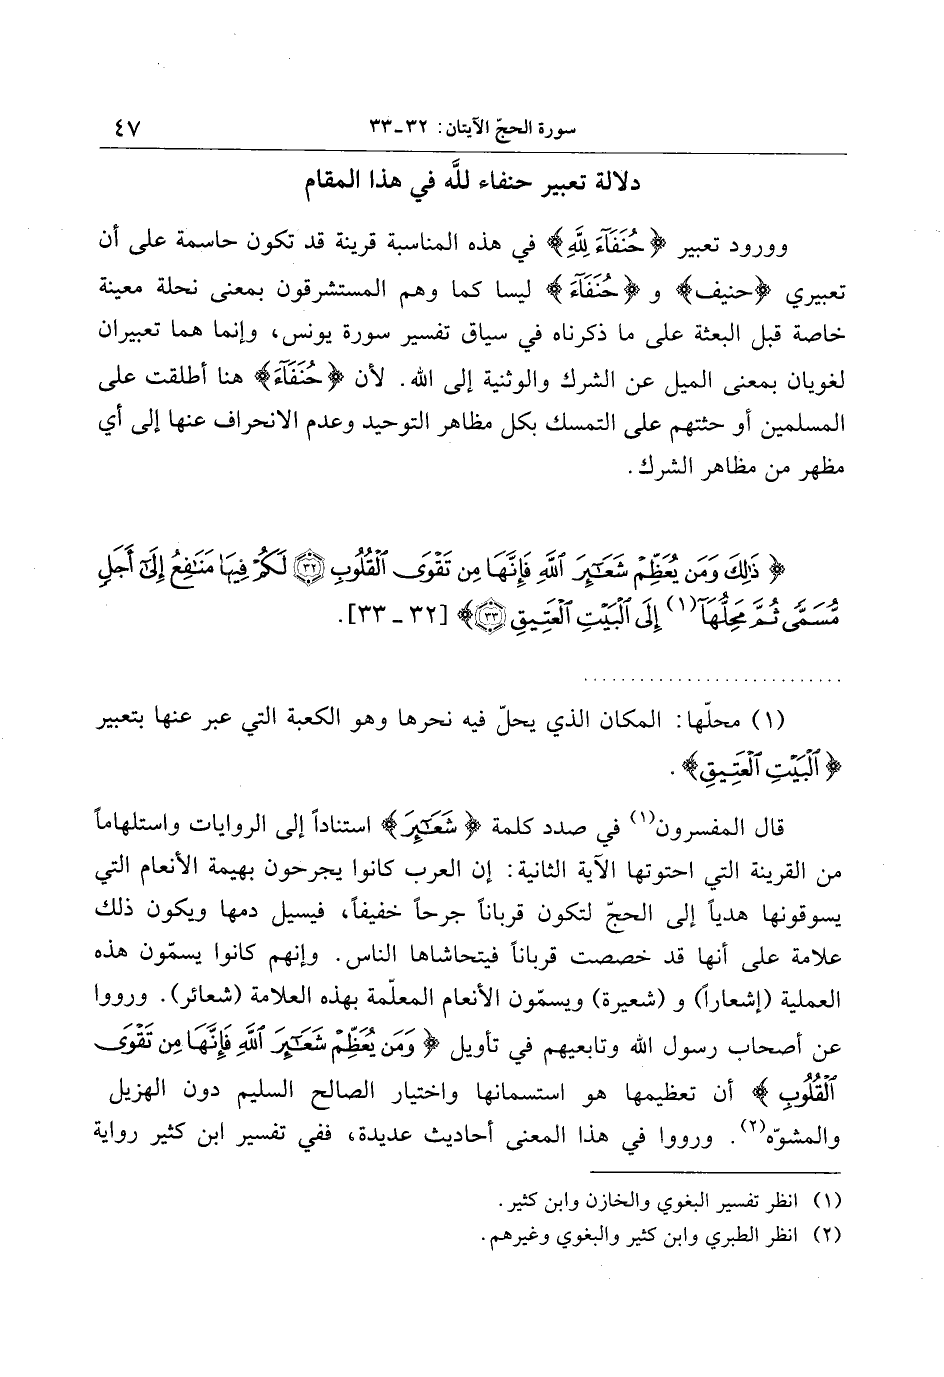 سورة الحجّ الآيتان: ٣٢-٣٣ ٤٧
دلالة تعبير حنفاء للَّه في هذا المقام
وورود تعبير ﴿حُنَفَآءَ لِلَّهِ﴾ في هذه المناسبة قرينة قد تكون حاسمة على أن
تعبيري ﴿حنيف﴾ و ﴿حُنَفَآءَ﴾ ليسا كما وهم المستشرقون بمعنى نحلة معينة
خاصة قبل البعثة على ما ذكرناه في سياق تفسير سورة يونس، وإنما هما تعبيران
لغويان بمعنى الميل عن الشرك والوثنية إلى الله. لأن ﴿حُنَفَآءَ﴾ هنا أطلقت على
المسلمين أو حثتهم على التمسك بكل مظاهر التوحيد وعدم الانحراف عنها إلى أي
مظهر من مظاهر الشرك.
﴿ذَٰلِكَ وَمَن يُعَظِّمْ شَعَـٰٓئِرَ ٱللَّهِ فَإِنَّهَا مِن تَقْوَى ٱلْقُلُوبِ ٣٢ لَكُمْ فِيهَا مَنَـٰفِعُ إِلَىٰٓ أَجَلٍ
مُّسَمًّى ثُمَّ مَحِلُّهَآ(١) إِلَى ٱلْبَيْتِ ٱلْعَتِيقِ ٣٣﴾ [٣٢ - ٣٣].
...........................
(١) محلّها: المكان الذي يحلّ فيه نحرها وهو الكعبة التي عبر عنها بتعبير
﴿ٱلْبَيْتِ ٱلْعَتِيقِ﴾.
قال المفسرون(١) في صدد كلمة ﴿شَعَـٰٓئِرَ﴾ استناداً إلى الروايات واستلهاماً
من القرينة التي احتوتها الآية الثانية: إن العرب كانوا يجرحون بهيمة الأنعام التي
يسوقونها هدياً إلى الحجّ لتكون قرباناً جرحاً خفيفاً، فيسيل دمها ويكون ذلك
علامة على أنها قد خصصت قرباناً فيتحاشاها الناس. وإنهم كانوا يسمّون هذه
العملية (إشعاراً) و (شعيرة) ويسمّون الأنعام المعلّمة بهذه العلامة (شعائر). ورووا
عن أصحاب رسول الله وتابعيهم في تأويل ﴿وَمَن يُعَظِّمْ شَعَـٰٓئِرَ ٱللَّهِ فَإِنَّهَا مِن تَقْوَى
ٱلْقُلُوبِ﴾ أن تعظيمها هو استسمانها واختيار الصالح السليم دون الهزيل
والمشوّه(٢). ورووا في هذا المعنى أحاديث عديدة، ففي تفسير ابن كثير رواية
(١) انظر تفسير البغوي والخازن وابن كثير.
(٢) انظر الطبري وابن كثير والبغوي وغيرهم.